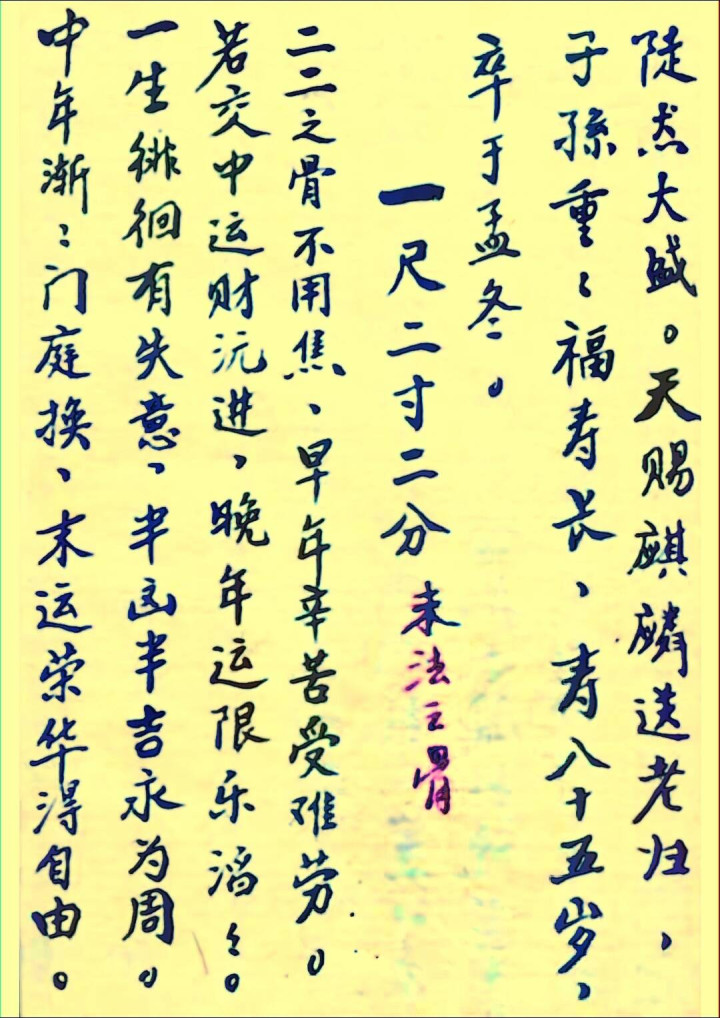 陡态大盛。天赐麒麟送老归、
子孫重〻福寿长、寿八十五岁、
卒于孟冬。
一尺二寸二分 末法之骨
二二之骨不用焦、早年辛苦受难劳。
若交中运财沅进，晚年运限乐滔〻。
一生徘徊有失意、半凶半吉永为周。
中年渐〻门庭换、末运荣华得自由。